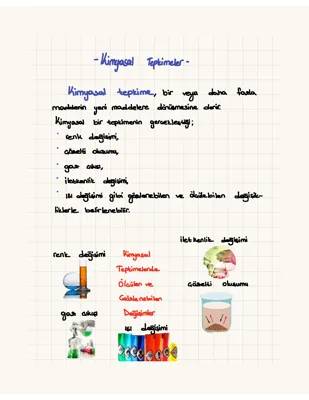 - Kimyasal Tepkimeler -
Kimyasal tepkime, bir veya daha fazla
maddenin yeni maddelere dönüşmesine denir.
Kimyasal bir tepkimenin gerçekleştiği;
• renk değişimi,
• çökelti oluşumu,
• gaz çıkışı,
• iletkenlik değişimi,
• ısı değişimi gibi gözlenebilen ve ölçülebilen değişik-
liklerle belirlenebilir.
iletkenlik değişimi
renk değişimi
Kimyasal
Tepkimelerde
Ölçülen ve
Gözlenebilen
Değişimler
çökelti oluşumu
gaz çıkışı
ısı değişimi